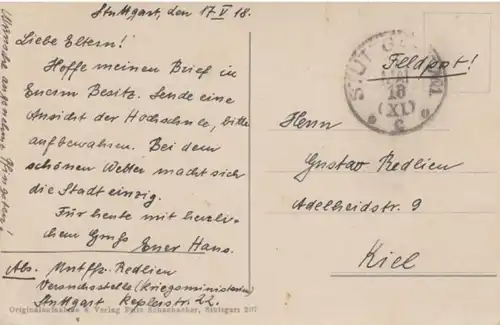 Stuttgart, den 17 V 18.
Liebe Eltern!
Hoffe meinen Brief in
Eurem Besitz. Sende eine
Ansicht der Hochschule, bitte
aufbewahren. Bei dem
schönen Wetter macht sich
die Stadt einzig.
Für heute mit herzli-
chem Gruß Euer Hans.
Abs. Redlien
Versuchsstelle (Kriegsministerium)
Stuttgart Keplerstr. 22.
Originalaufnahme & Verlag Fritz Schumacher, Stuttgart 207
angenehme Pfingsten!
STUTTG
18
(XI)
c
Feldpost!
Herrn
Gustav Redlien
Adelheidstr. 9
Kiel